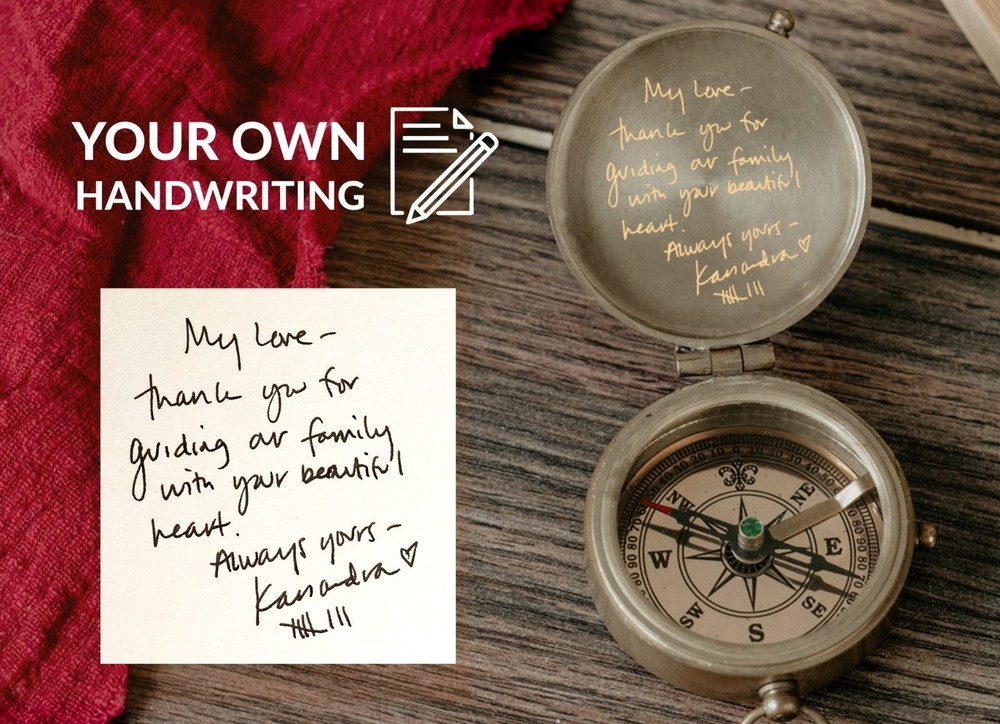 YOUR OWN
HANDWRITING
My Love -
thank you for
guiding our family
with your beautiful
heart.
Always yours -
Kassandra ♡
卌 |||
My Love -
thank you for
guiding our family
with your beautiful
heart.
Always yours -
Kassandra ♡
卌 |||
NW NE
W E
SW SE
S